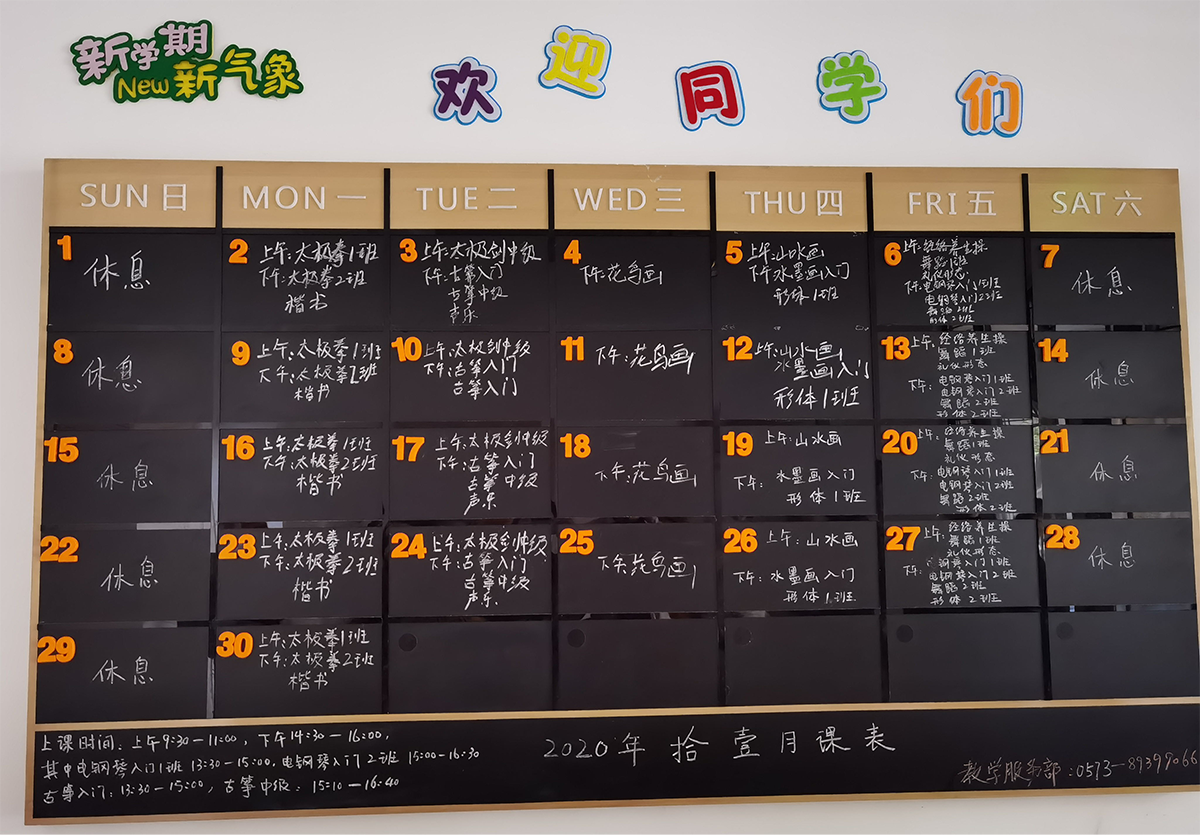 新学期
New 新气象
欢迎同学们
SUN 日 MON 一 TUE 二 WED 三 THU 四 FRI 五 SAT 六
1
休息
2
上午:太极拳1班
下午:太极拳2班
楷书
3
上午:太极剑中级
下午:古筝入门
古筝中级
声乐
4
下午:花鸟画
5
上午:山水画
下午:水墨画入门
形体1班
6
上午:经络养生操
舞蹈1班
礼仪形态
下午:电钢琴入门1班
电钢琴入门2班
舞蹈2班
形体2班
7
休息
8
休息
9
上午:太极拳1班
下午:太极拳2班
楷书
10
上午:太极剑中级
下午:古筝入门
古筝入门
11
下午:花鸟画
12
上午:山水画
水墨画入门
形体1班
13
上午:经络养生操
舞蹈1班
礼仪形态
下午:电钢琴入门1班
电钢琴入门2班
舞蹈2班
形体2班
14
休息
15
休息
16
上午:太极拳1班
下午:太极拳2班
楷书
17
上午:太极剑中级
下午:古筝入门
古筝中级
声乐
18
下午:花鸟画
19
上午:山水画
下午:水墨画入门
形体1班
20
上午:经络养生操
舞蹈1班
礼仪形态
下午:电钢琴入门1班
电钢琴入门2班
舞蹈2班
形体2班
21
休息
22
休息
23
上午:太极拳1班
下午:太极拳2班
楷书
24
上午:太极剑中级
下午:古筝入门
古筝中级
声乐
25
下午:花鸟画
26
上午:山水画
下午:水墨画入门
形体1班
27
上午:经络养生操
舞蹈1班
礼仪形态
下午:钢琴入门1班
电钢琴入门2班
舞蹈2班
形体2班
28
休息
29
休息
30
上午:太极拳1班
下午:太极拳2班
楷书
上课时间:上午9:30-11:00,下午14:30-16:00,
其中电钢琴入门1班 13:30-15:00,电钢琴入门2班 15:00-16:30
古筝入门:13:30-15:00,古筝中级:15:10-16:40
2020年 拾壹月课表
教学服务部:0573-89399066